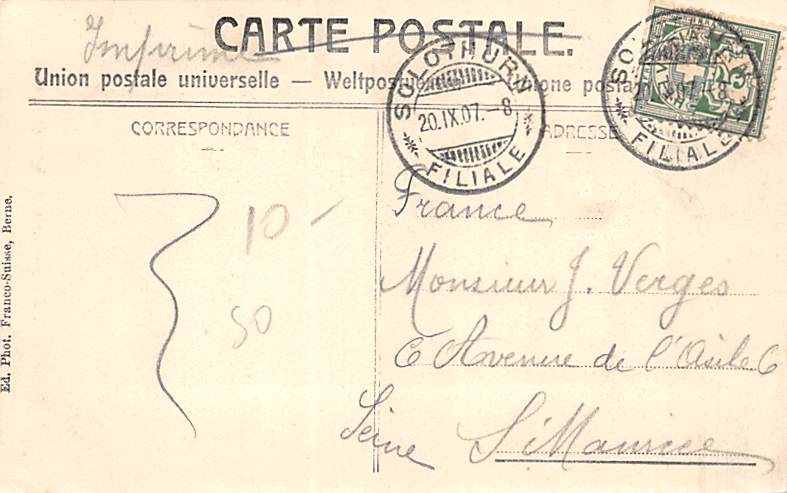 Imprimé
CARTE POSTALE.
Union postale universelle — Weltpost
one posta
SOLOTHURN
20.IX.07.-8
FILIALE
SO
.07.-8
FILIALE
CORRESPONDANCE
ADRESSE
France
10 -
Monsieur J. Verges
50
6 Avenue de l'Asile 6
Seine St Maurice
Ed. Phot. Franco-Suisse, Berne.